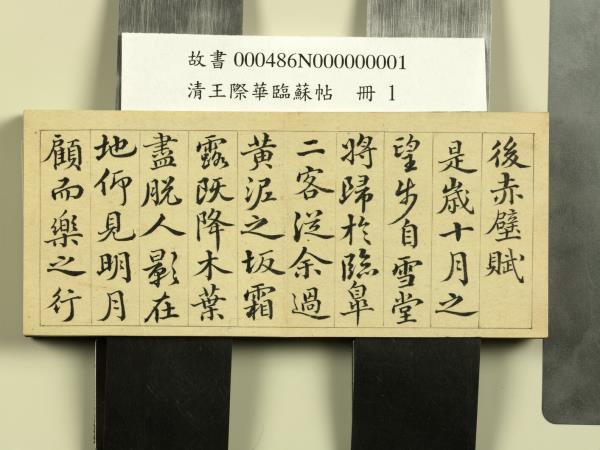 故書 000486N000000001
清王際華臨蘇帖 冊 1
後赤壁賦
是歲十月之
望步自雪堂
將歸於臨皐
二客從余過
黄泥之坂霜
露既降木葉
盡脫人影在
地仰見明月
顧而樂之行